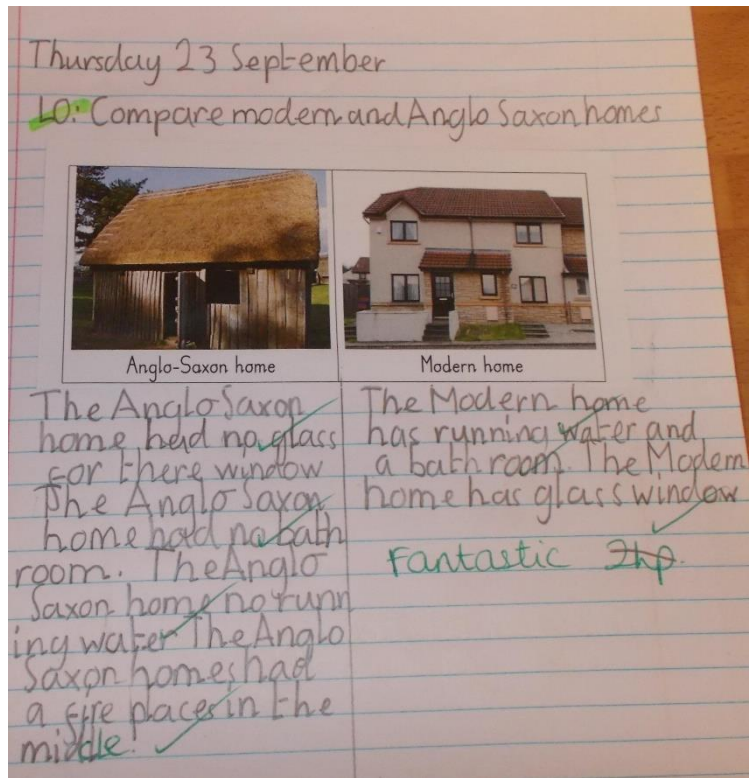 Thursday 23 September
LO: Compare modern and Anglo Saxon homes
Anglo-Saxon home
Modern home
The Anglo Saxon
home had no glass
for there window
The Anglo Saxon
home had no bath
room. The Anglo
Saxon home no runn
ing water The Anglo
Saxon homes had
a fire places in the
middle.
The Modern home
has running water and
a bath room. The Modern
home has glass window
Fantastic 2hp.